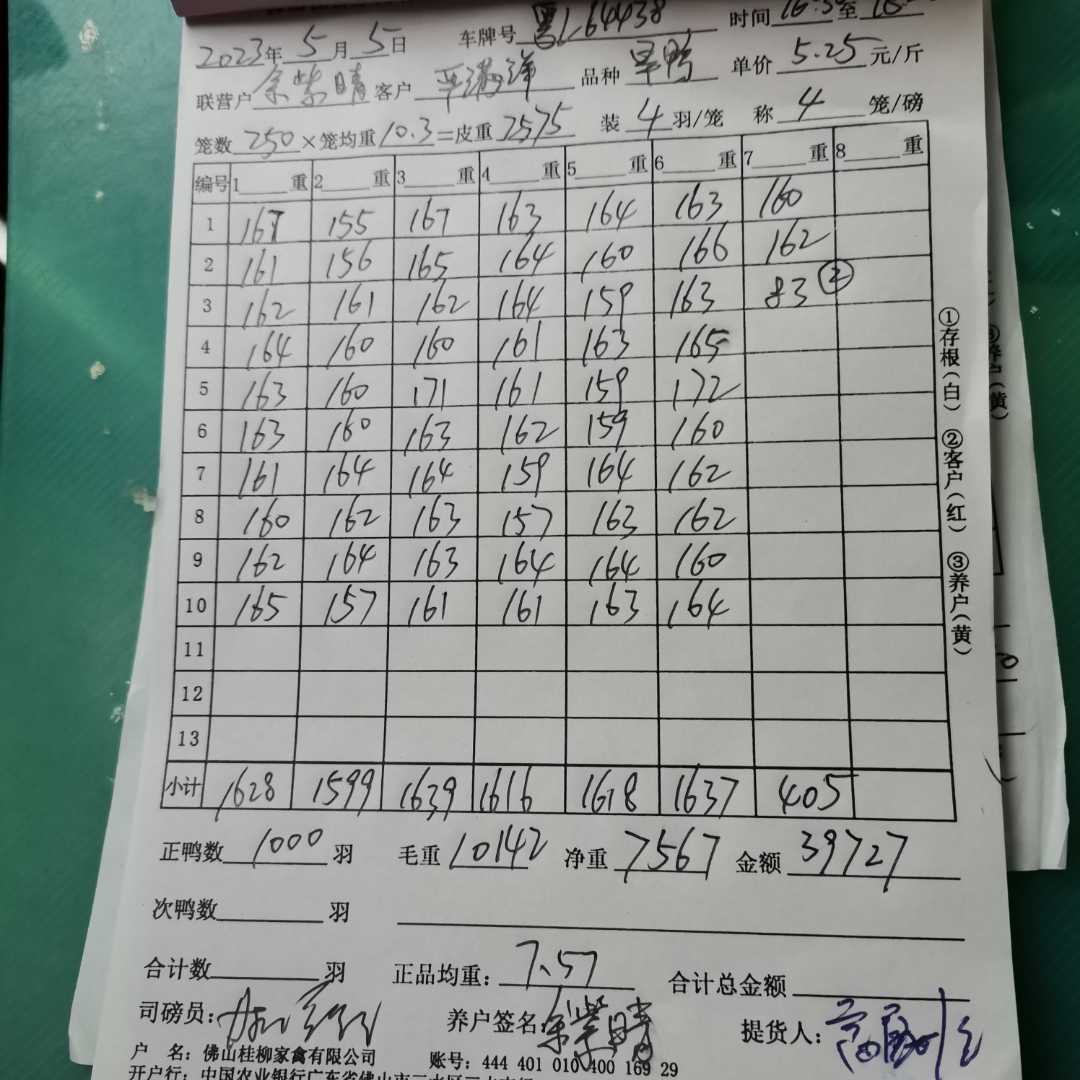 2023年 5月 5日 车牌号 粤L64438 时间 至
联营户 余紫晴 客户 品种 旱鸭 单价 5.25 元/斤
笼数 250 ×笼均重 10.3 =皮重 2575 装 4 羽/笼 称 4 笼/磅
编号 1 重 2 重 3 重 4 重 5 重 6 重 7 重 8 重
1 167 155 167 163 164 163 160
2 161 156 165 164 160 166 162
3 162 161 162 164 159 163 83 ②
4 164 160 160 161 163 165
5 163 160 171 161 159 172
6 163 160 163 162 159 160
7 161 164 164 159 164 162
8 160 162 163 157 163 162
9 162 164 163 164 164 160
10 165 157 161 161 163 164
11
12
13
小计 1628 1599 1639 1616 1618 1637 405
①存根(白) ②客户(红) ③养户(黄)
正鸭数 1000 羽 毛重 10142 净重 7567 金额 39727
次鸭数 羽
合计数 羽 正品均重: 7.57 合计总金额
司磅员: 养户签名: 余紫晴 提货人:
户 名: 佛山桂柳家禽有限公司 账号: 444 401 010 400 169 29
开户行: 中国农业银行广东省佛山市三水区